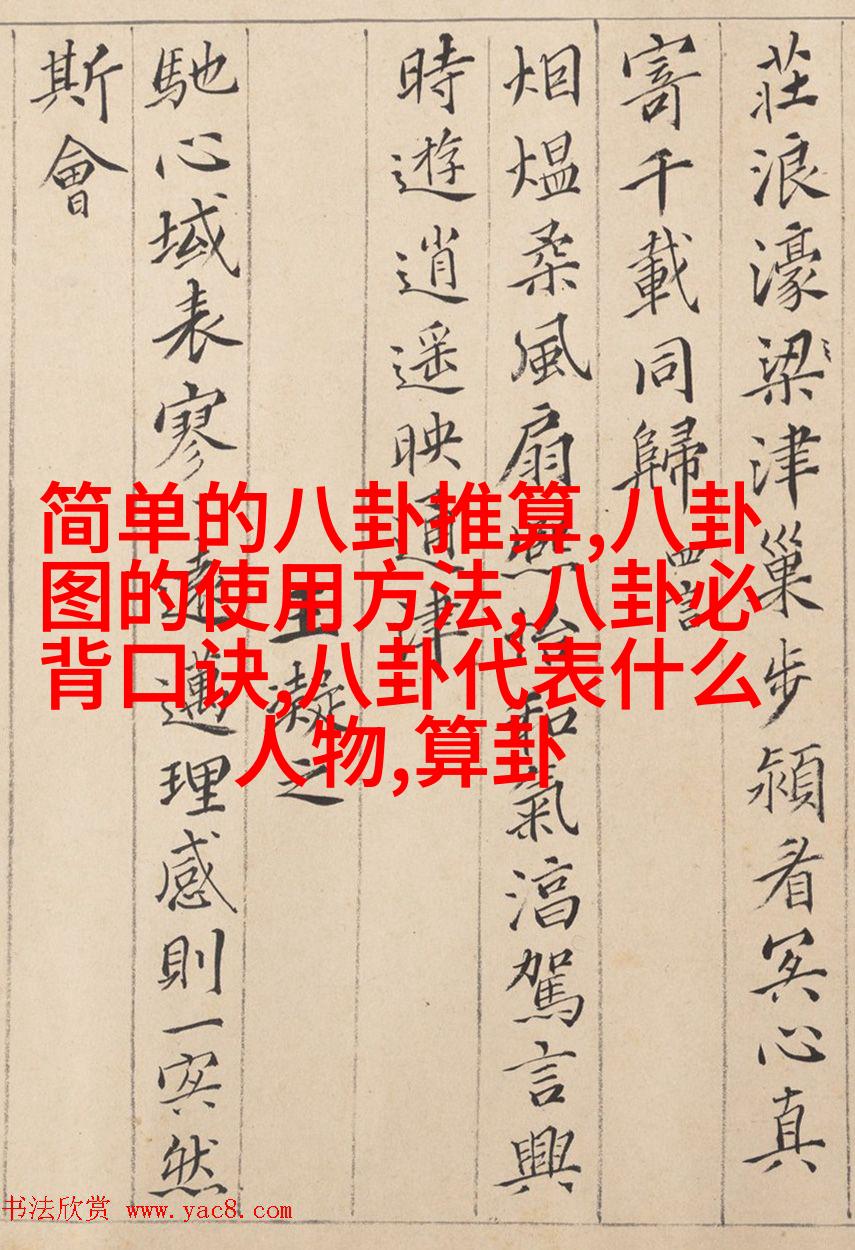 莊浪濠梁津巢步潁看冥心真
寄千載同歸
四言
烟熅柔風扇
和氣淊駕言興
時遊逍遥映通津
王凝之
馳心域表寥
遠邁理感則一冥然
斯會
简单的八卦推算,八卦
图的使用方法,八卦必
背口诀,八卦代表什么
人物,算卦
书法欣赏 www.yac8.com